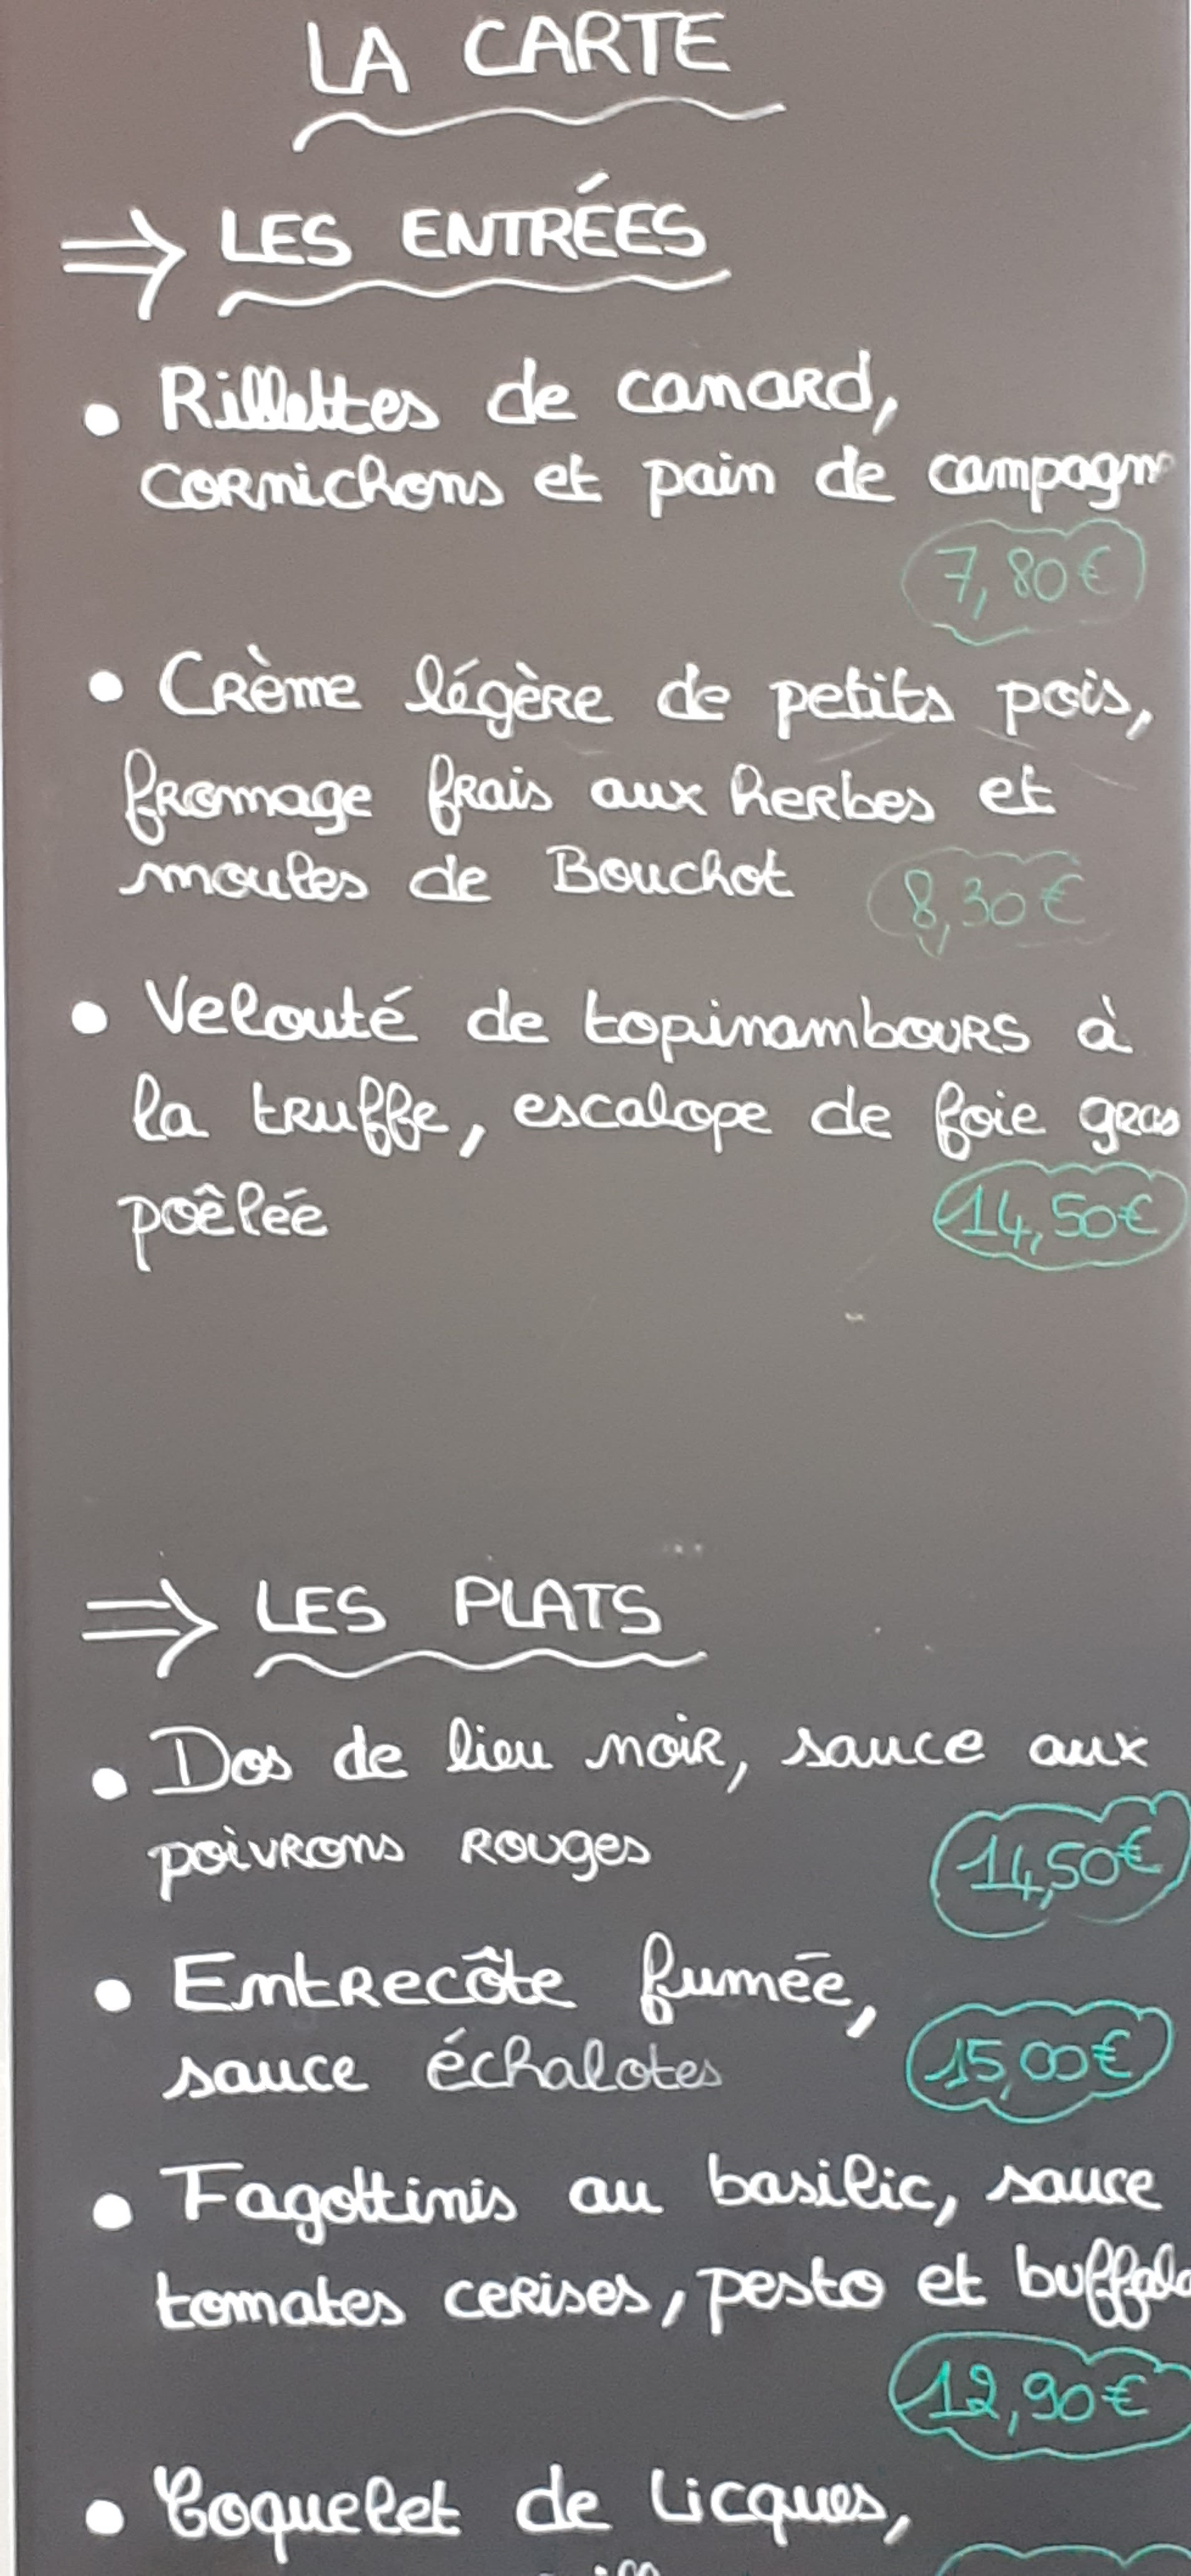 LA CARTE
⇒ LES ENTRÉES
• Rillettes de canard,
cornichons et pain de campagn
7,80€
• Crème légère de petits pois,
fromage frais aux herbes et
moules de Bouchot 8,30€
• Velouté de topinambours à
la truffe, escalope de foie gras
poêlée 14,50€
⇒ LES PLATS
• Dos de lieu noir, sauce aux
poivrons rouges 14,50€
• Entrecôte fumée,
sauce échalotes 15,00€
• Fagottinis au basilic, sauce
tomates cerises, pesto et buffala
12,90€
• Coquelet de Licques,